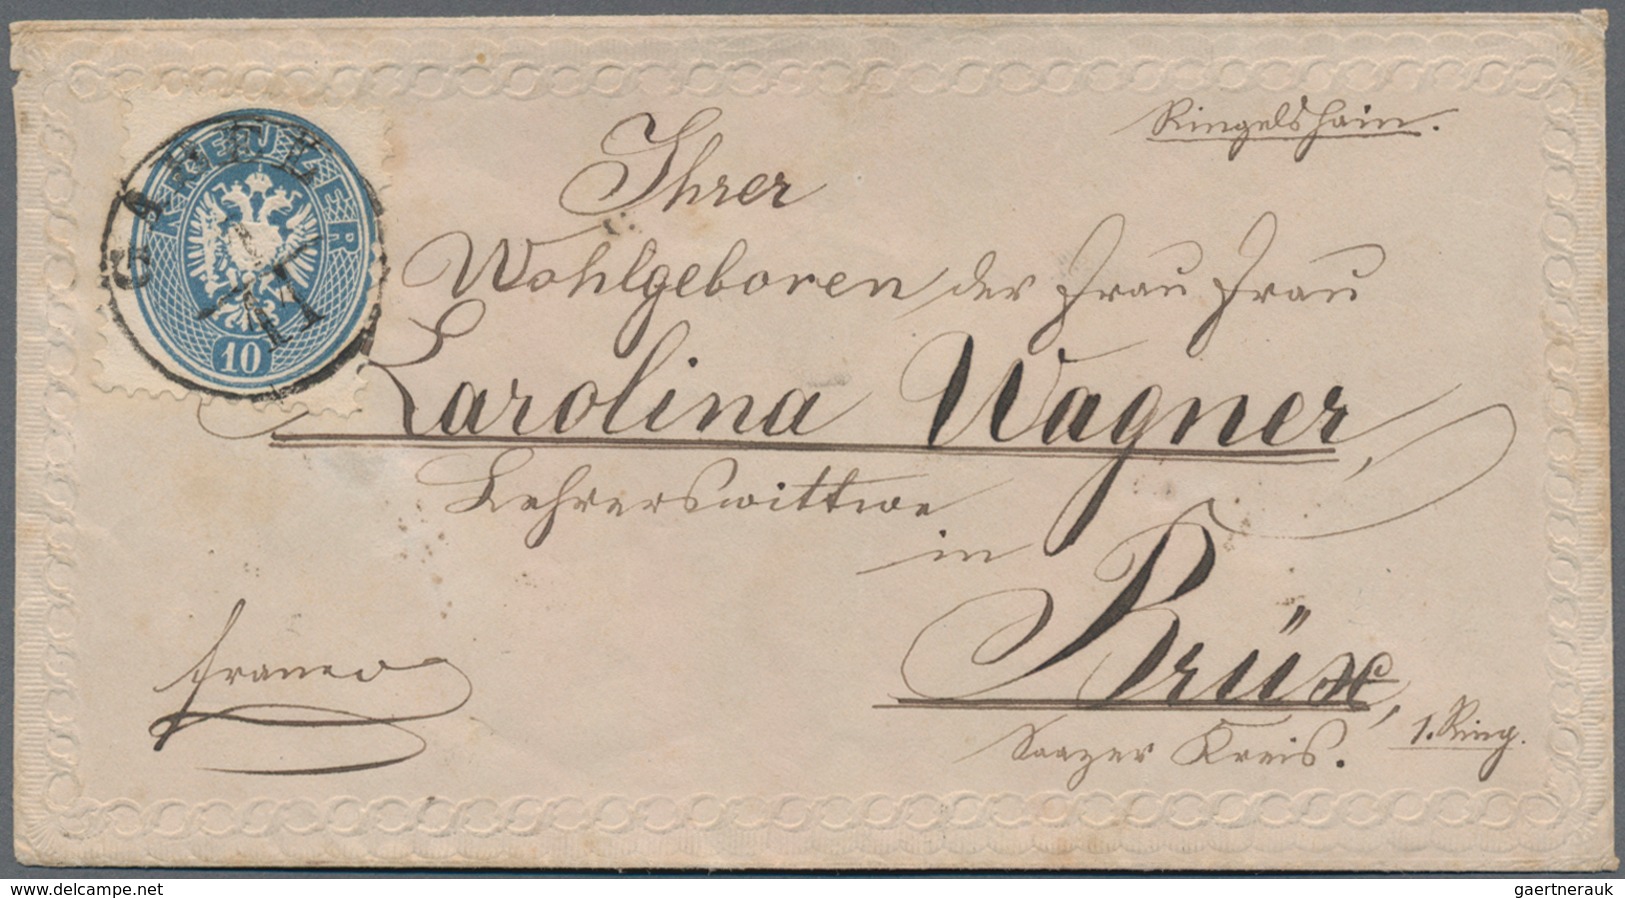 Ringelshain.
KREUZER
10
GABEL
Ihrer
Wohlgeboren der Frau Frau
Carolina Wagner,
Lehrerswittwe
in
Brüx,
Saazer Kreis.
1. Ring.
franco
www.delcampe.net
gaertnerauk